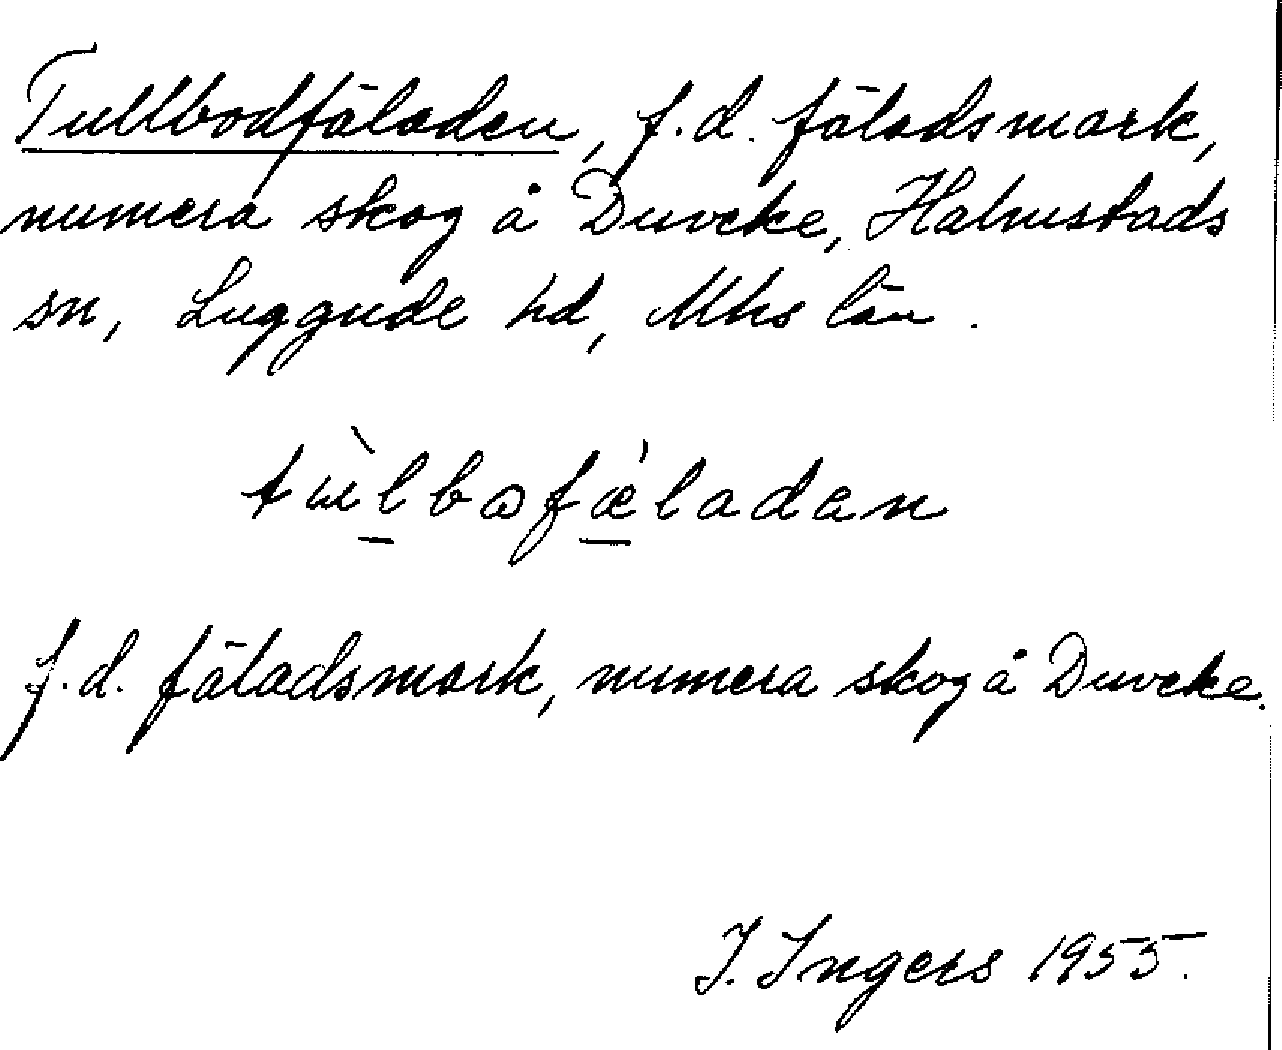 Tullbodfäladen, f.d. fäladsmark,
numera skog å Duveke, Halmstads
sn, Luggude hd, Mhs län.
tɯ̀lbɷfǽladan
f.d. fäladsmark, numera skog å Duveke.
I. Ingers 1955.